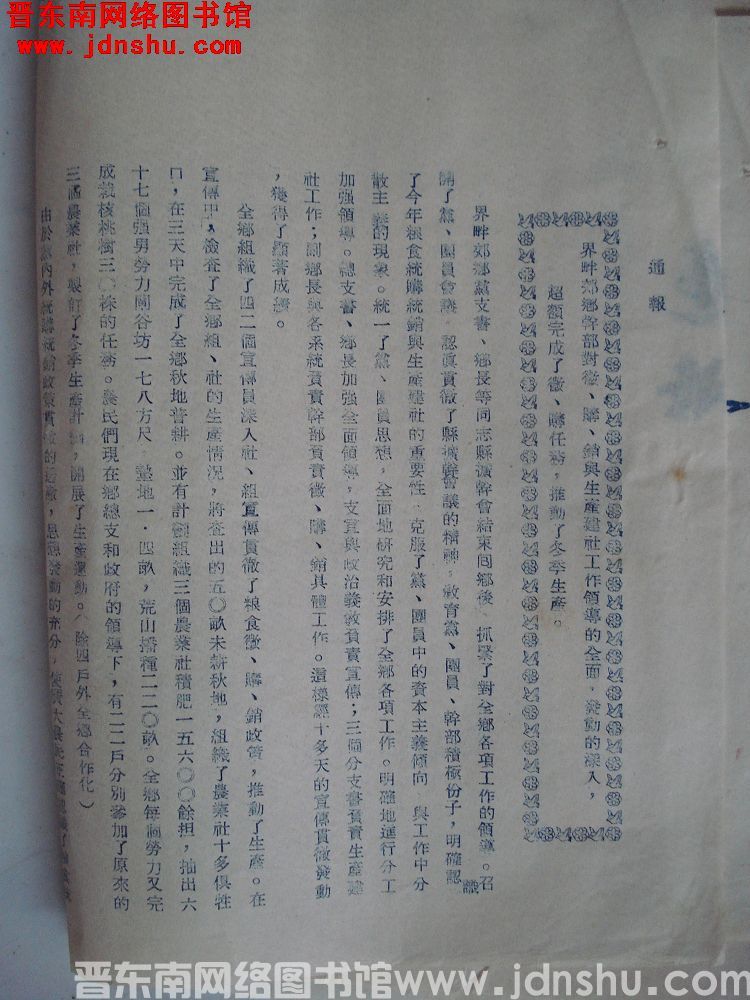 晋东南网络图书馆
www.jdnshu.com
通報
界畔郊鄉幹部對徵、購、銷與生產建社工作領導的全面，發動的深入，
超額完成了徵、購任務，推動了冬季生產。
界畔郊鄉黨支書、鄉長等同志縣滅幹會結束囘鄉後，抓緊了對全鄉各項工作的領導。召
開了黨、團員會議，認眞貫徹了縣滅幹會議的精神，敎育黨、團員、幹部積極份子，明確認識
了今年粮食統購統銷與生產建社的重要性，克服了黨、團員中的資本主義傾向，與工作中分
散主義的現象。統一了黨、團員思想，全面地研究和安排了全鄉各項工作。明確地進行分工
加强領導。總支書、鄉長加强全面領導，支宣與政治義敎員責宣傳；三個分支書負責生產建
社工作；副鄉長與各系統負責幹部負責徵、購、銷具體工作。這樣經十多天的宣傳貫徹發動
，獲得了顯著成績。
全鄉組織了四二個宣傳員深入社、組宣傳貫徹了粮食徵、購、銷政策，推動了生產。在
宣傳中，檢查了全鄉組、社的生產情况，將查出的五〇畝未耕秋地，組織了農業社十多俱牲
口，在三天中完成了全鄉秋地普耕。並有計劃組織三個農業社積肥一五六〇〇餘担，抽出六
十七個强男勞力閘谷坊一七八方尺，墊地一·四畝，荒山播種二二〇畝。全鄉每個勞力又完
成栽核桃樹三〇株的任務。農民們現在鄉總支和政府的領導下，有二二戶分別參加了原來的
三個農業社，製訂了冬季生產計劃，開展了生產運動。（除四戶外全鄉合作化）
由於黨內外統購統銷政策貫徹的透徹，思想發動的充分，使廣大農民
晋东南网络图书馆www.jdnshu.com